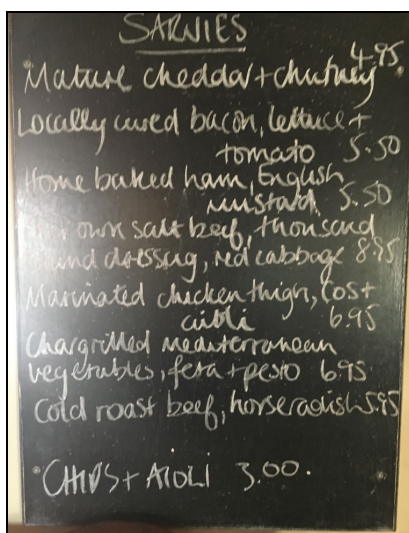 SARNIES
4.95
Mature cheddar + chutney
Locally cured bacon, lettuce +
tomato 5.50
Home baked ham, English
mustard 5.50
own salt beef, thousand
dressing, red cabbage 8.95
Marinated chicken thigh, cos +
6.95
Chargrilled mediterranean
vegetables, feta + pesto 6.95
Cold roast beef, horseradish 5.95
CHIPS + AIOLI 3.00.